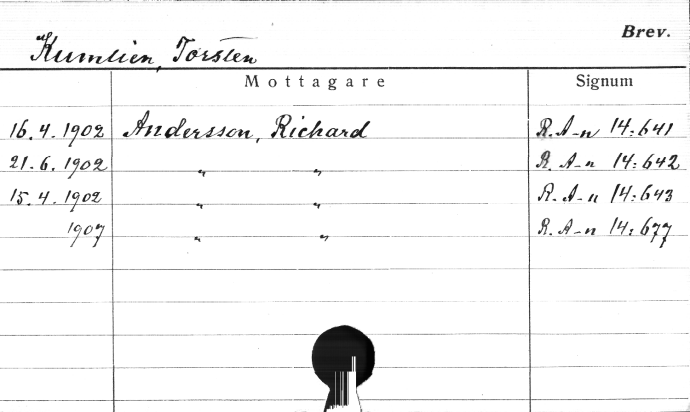 Brev.
Kumlien, Torsten
Mottagare Signum
16.4.1902 Andersson, Richard R. A-n 14:641
21.6.1902 " " R. A-n 14:642
15.4.1902 " " R. A-n 14:643
1907 " " R. A-n 14:677